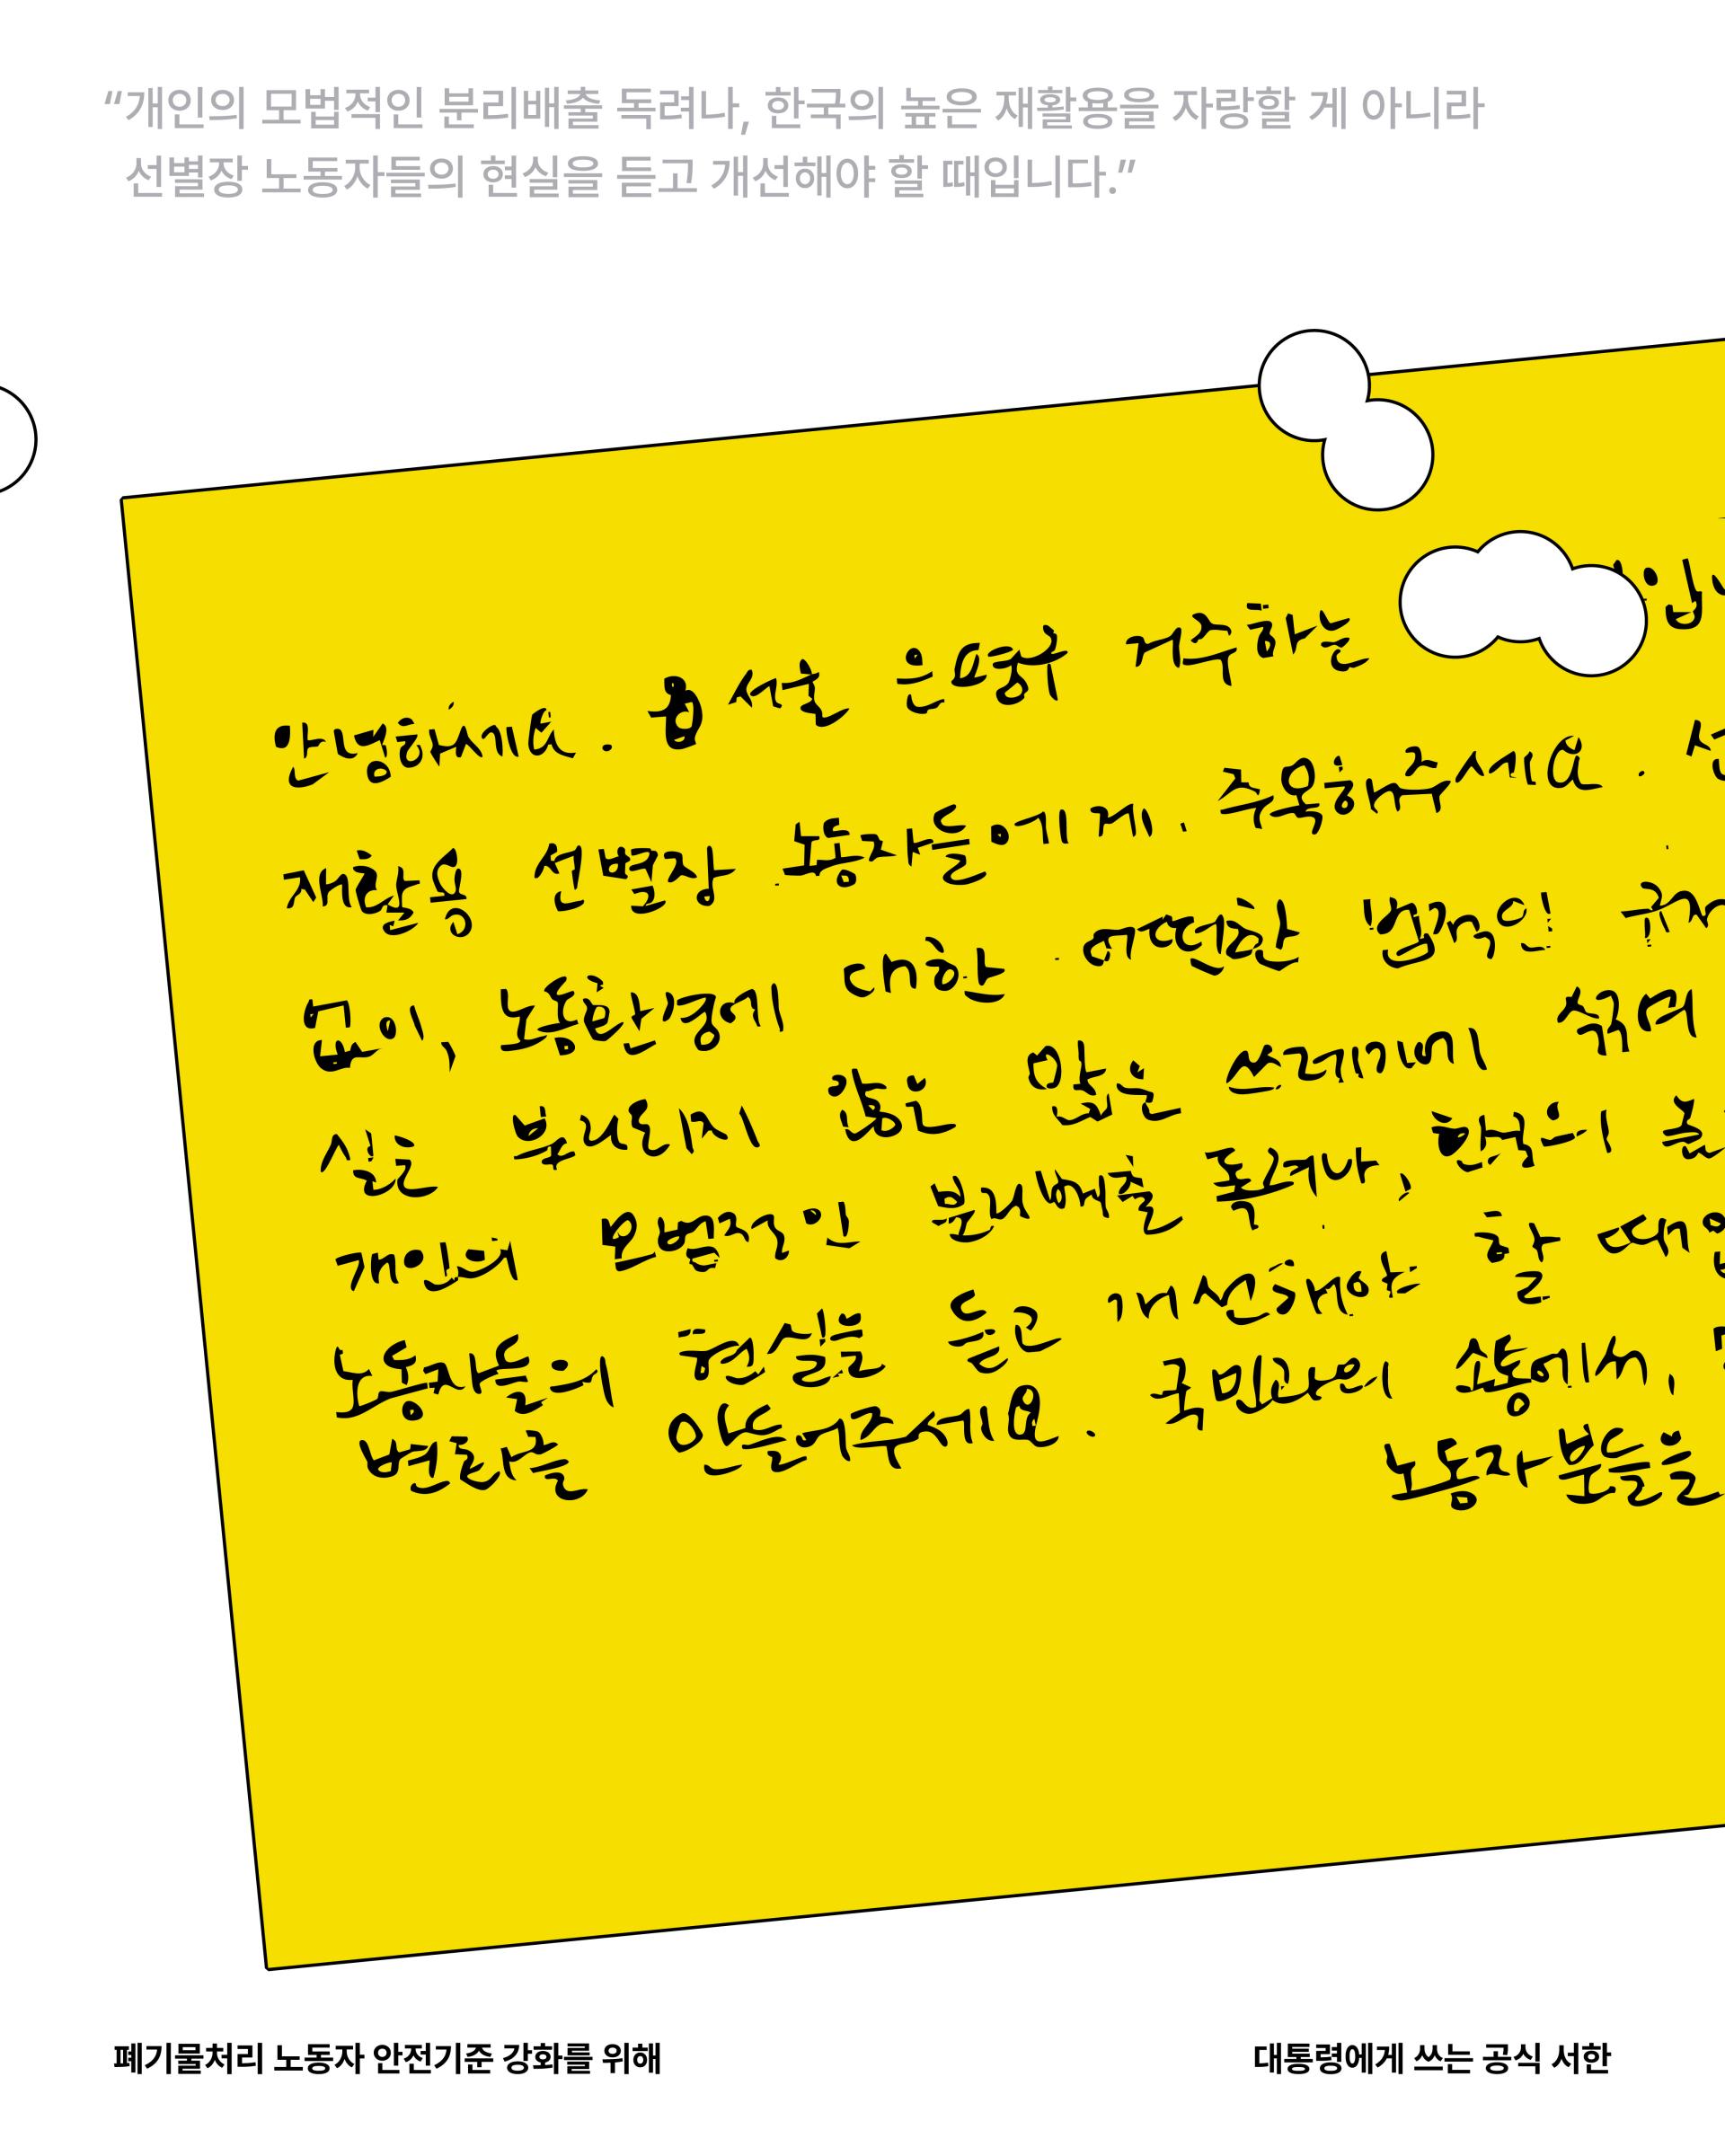 “개인의 모범적인 분리배출 독려나, 한국의 높은 재활용율 자랑할 게 아니라
선별장 노동자들의 현실을 듣고 개선해야 할 때입니다.”
안녕하세요. 서울 은평구 거주하는
재활용 선별장 노동자들에게 주목해주세요.
없이, 노동환경에 대한 방역!
싣은 분리되지 않은 쓰레기에
개인의 모범적인 분리배출 독려나, 한국의
노동자들의 현실을 듣고 개선해야 할 때입
법률을 만들어주세요. 국민의 동에서,
노동자분들을
폐기물처리 노동자 안전기준 강화를 위해
대통령에게 쓰는 공식 서한